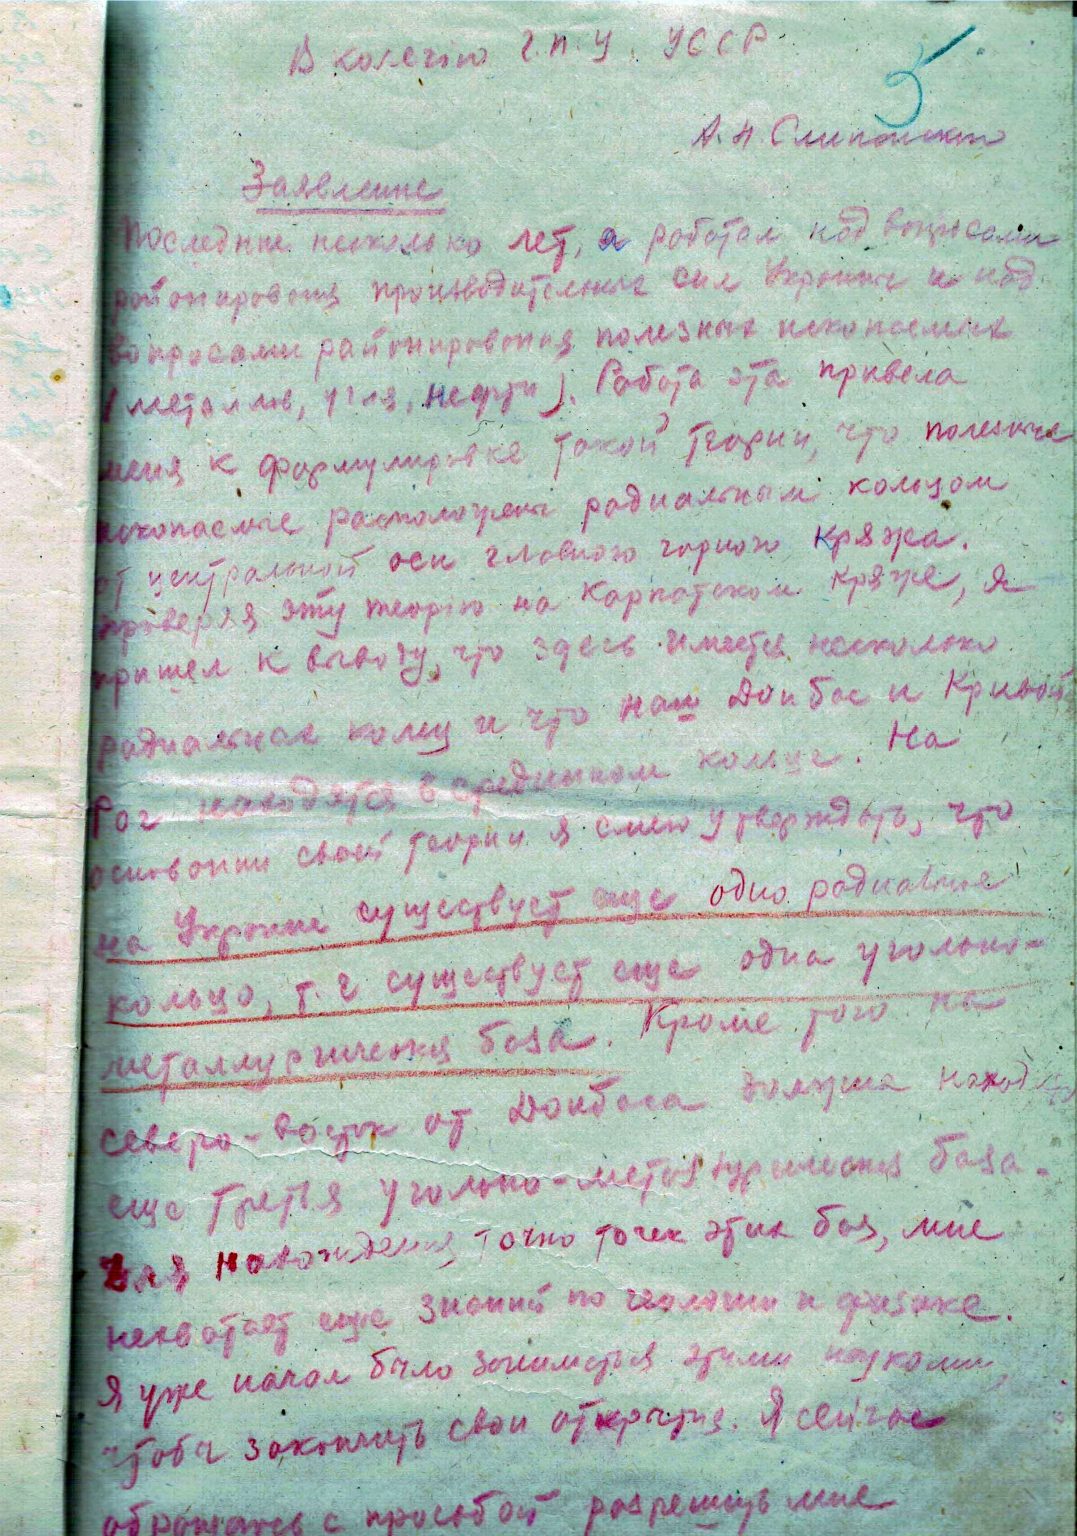 В колегію Г.П.У. УССР
5
А.А. Слипанского
Заявление
Последние несколько лет, я работал над вопросами
районирования производительных сил Украины и над
вопросами районирования полезных ископаемых
(металлов, угля, нефти). Работа эта привела
меня к формулировке такой теории, что полезные
ископаемые расположены радиальным кольцом
от центральной оси главного горного кряжа.
Проверяя эту теорию на Карпатском кряже, я
пришел к выводу, что здесь имеется несколько
радиальных колец и что наш Донбас и Кривой
Рог находятся в средином кольце. На
основании своей теории я смею утверждать, что
на Украине существует еще одно радиальное
кольцо, т.е существует еще одна угольно-
металлургическая база. Кроме того на
северо-восток от Донбаса должна находится
еще третья угольно-металлургическая база.
Для нахождения точно точек этих баз, мне
нехватает еще знаний по геологии и физике.
Я уже начал было заниматься этими науками,
чтобы закончить свои открытия. Я сейчас
обращаюсь с просьбой разрешить мне